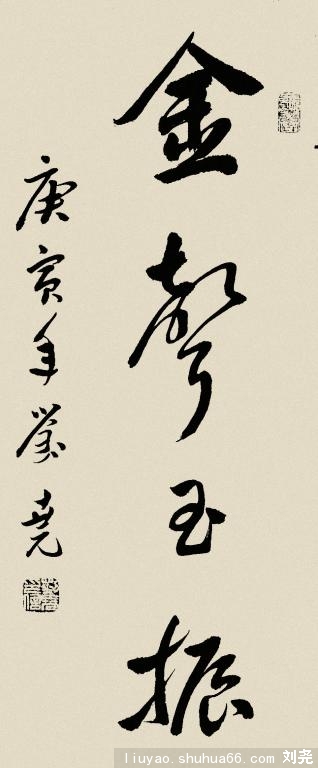 金聲玉振
庚寅年劉堯
liuyao.shuhua66.com 刘尧